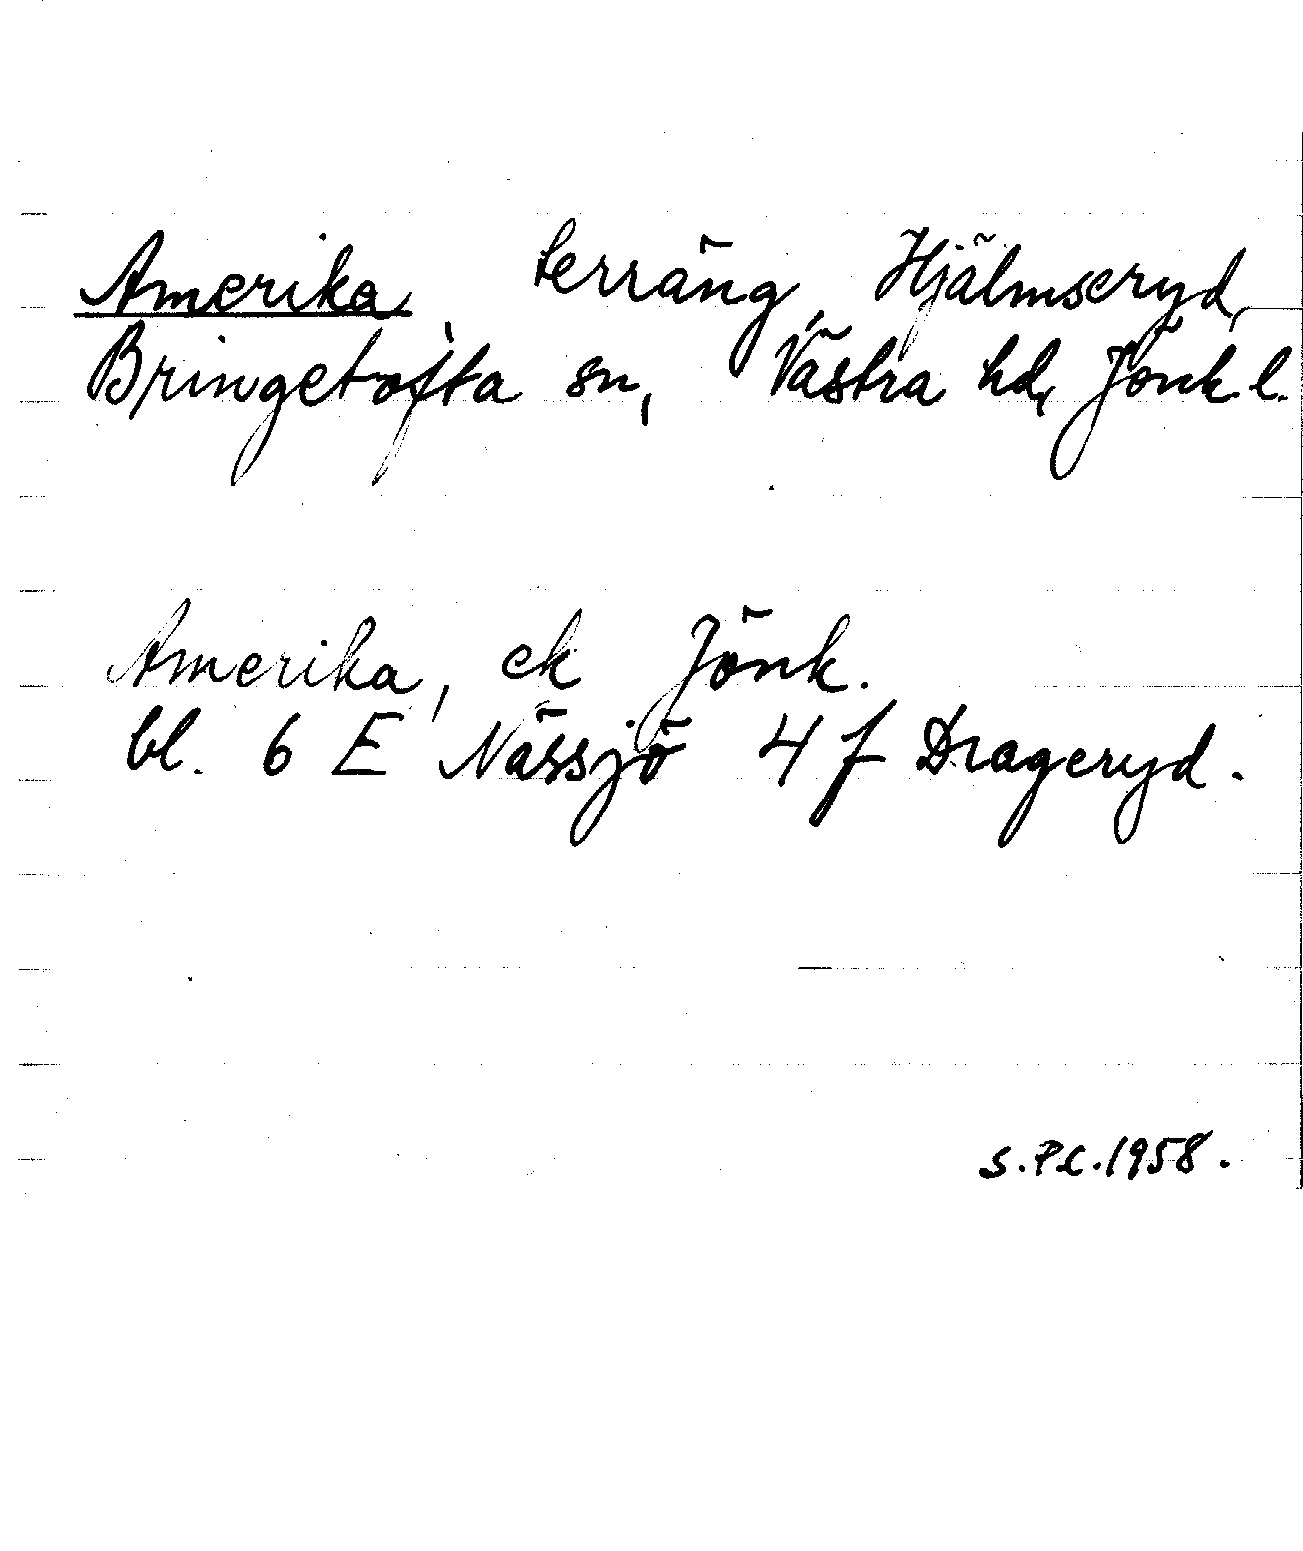 Amerika, terräng, Hjälmseryd,
Bringetofta sn, Västra hd, Jönk. l.
Amerika, ek Jönk.
bl. 6 E Nässjö 4 f Drageryd.
S.P.C. 1958.